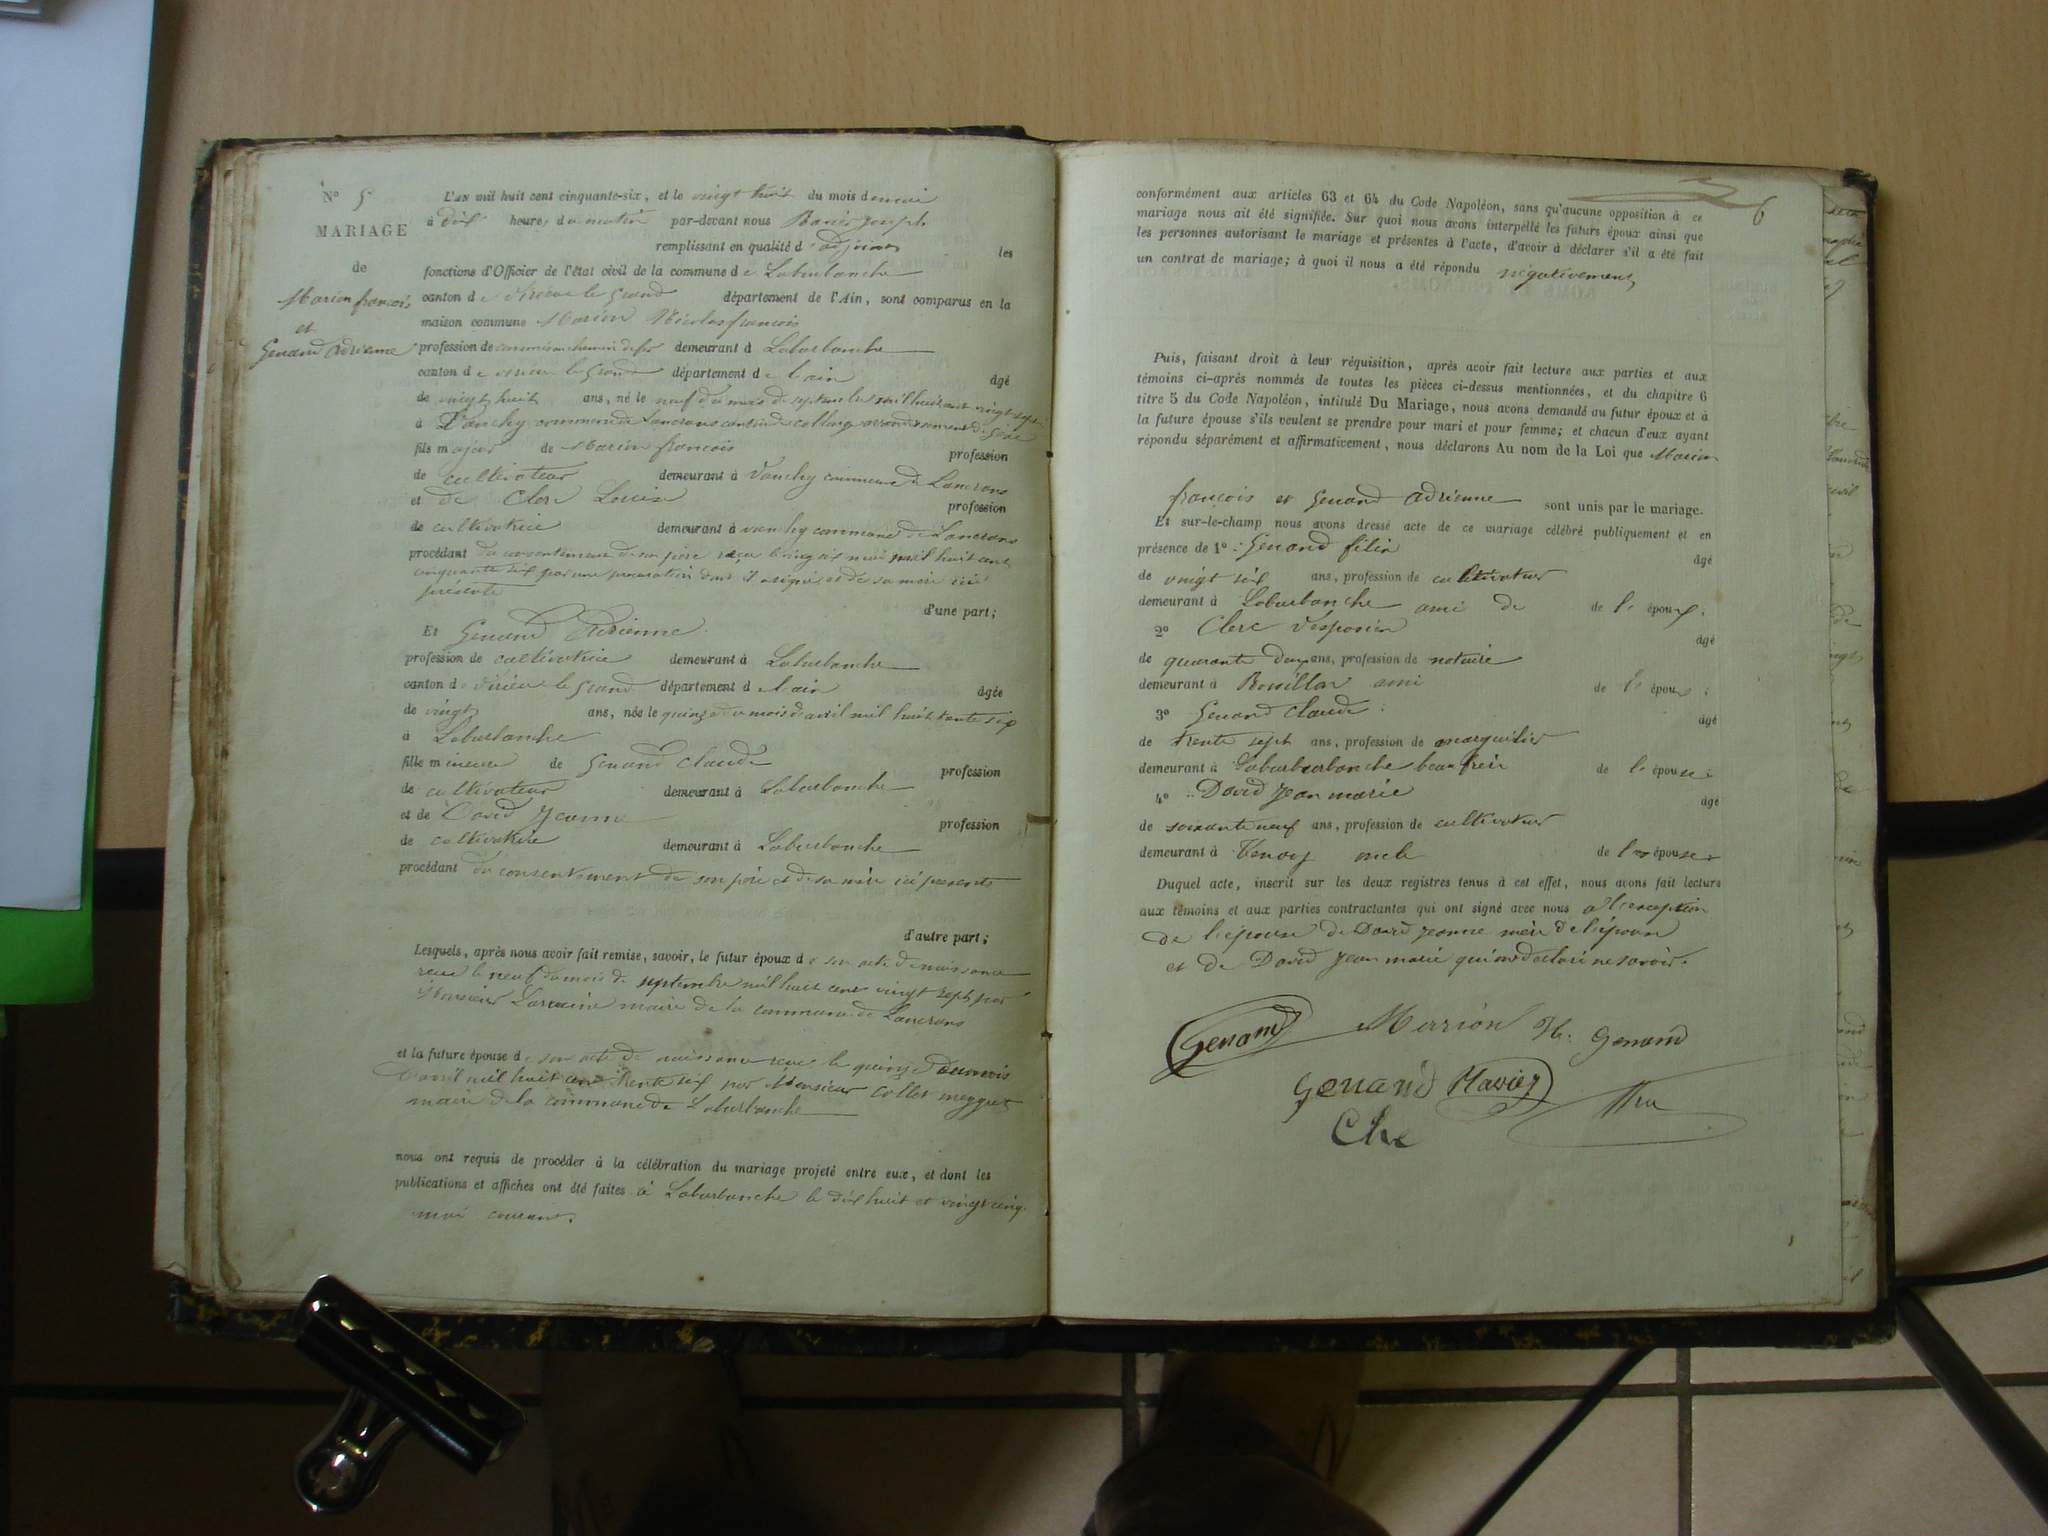 N° 5
MARIAGE
de
Marion françois
et
Genand adrienne
L'AN mil huit cent cinquante-six, et le vingt huit du mois de mai
à dix heures du matin par-devant nous joseph
remplissant en qualité d'adjoint les
fonctions d'Officier de l'état civil de la commune de Laburbanche
canton de virieu le grand département de l'Ain, sont comparus en la
maison commune Marion Nicolas françois
profession de chemin de fer demeurant à Laburbanche
canton de virieu le Grand département de l'ain âgé
de vingt huit ans, né le neuf du mois de septembre mil huit cent vingt sept
à Vanchy commune de Lancrans canton de collonge arrondissement de Gex
fils majeur de Marion françois profession
de cultivateur demeurant à Vanchy commune de Lancrans
et de Clerc Louise profession
de cultivatrice demeurant à vanchy commune de Lancrans
procédant du consentement de son père reçu le vingt six mai mil huit cent
cinquante six par une procuration dont il a signé et de sa mère ici
présente
d'une part;
Et Genand Adrienne
profession de cultivatrice demeurant à Laburbanche
canton de Virieu le Grand département de l'ain âgée
de vingt ans, née le quinze du mois d'avril mil huit trente six
à Laburbanche
fille mineure de Genand Claude profession
de cultivateur demeurant à Laburbanche
et de David Jeanne profession
de cultivatrice demeurant à Laburbanche
procédant du consentement de son père et de sa mère ici présents
d'autre part;
Lesquels, après nous avoir fait remise, savoir, le futur époux de son acte de naissance
reçu le neuf du mois de septembre mil huit cent vingt sept par
Monsieur maire de la commune de Lancrans
et la future épouse de son acte de naissance reçu le quinze du mois
d'avril mil huit cent trente six par Monsieur Collet
maire de la commune de Laburbanche
nous ont requis de procéder à la célébration du mariage projeté entre eux, et dont les
publications et affiches ont été faites à Laburbanche le dix huit et vingt cinq
mai courant.
6
conformément aux articles 63 et 64 du Code Napoléon, sans qu'aucune opposition à ce
mariage nous ait été signifiée. Sur quoi nous avons interpellé les futurs époux ainsi que
les personnes autorisant le mariage et présentes à l'acte, d'avoir à déclarer s'il a été fait
un contrat de mariage; à quoi il nous a été répondu négativement
Puis, faisant droit à leur réquisition, après avoir fait lecture aux parties et aux
témoins ci-après nommés de toutes les pièces ci-dessus mentionnées, et du chapitre 6
titre 5 du Code Napoléon, intitulé Du Mariage, nous avons demandé au futur époux et à
la future épouse s'ils veulent se prendre pour mari et pour femme; et chacun d'eux ayant
répondu séparément et affirmativement, nous déclarons Au nom de la Loi que Marion
françois et Genand adrienne sont unis par le mariage.
Et sur-le-champ nous avons dressé acte de ce mariage célébré publiquement et en
présence de 1° : Genand félix âgé
de vingt six ans, profession de cultivateur
demeurant à Laburbanche ami de de l' époux;
2° Clerc âgé
de quarante deux ans, profession de notaire
demeurant à Rossillon ami de l' époux;
3° Genand Claude âgé
de trente sept ans, profession de marguilier
demeurant à Laburburbanche beau frère de l' épouse;
4° David Jean marie âgé
de soixante neuf ans, profession de cultivateur
demeurant à Tenay oncle de l' épouse
Duquel acte, inscrit sur les deux registres tenus à cet effet, nous avons fait lecture
aux témoins et aux parties contractantes qui ont signé avec nous à l'exception
de l'épouse de David Jeanne mère de l'épouse
et de David Jean marie qui ont déclaré ne savoir.
Genand Marion Genand
Genand
Clerc